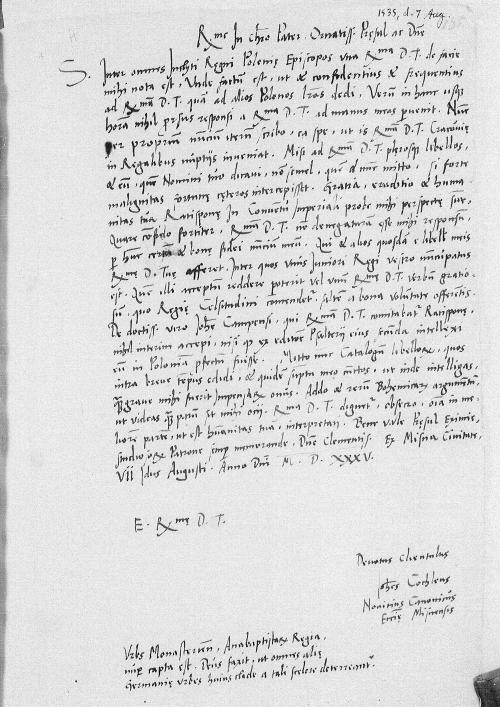 1535, d. 7 Aug.
Rme In Chro Pater. Ornatiss. Pręsul ac Dne
S. Inter omnes Inclyti Regni Polonię Episcopos vna Rma D. T. de facie
mihi nota est. Vnde factum est, ut & confidentius & frequentius
ad Rmam D. T. quam ad alios Polonos lras dedi. Verum in hanc usque
horam nihil prorsus responsi a Rma D. T. ad manus meas peruenit. Nunc
per proprium nuncium iterum scribo, ea spe, ut is Rmam D. T. Cracouię
in Regalibus nuptijs inueniat. Misi ad Rmam D. T. plerosque libellos,
& eum, quem Nomini tuo dicaui, non semel, quem & nunc mitto, si forte
malignitas ceteros intercepisset. Gratia, eruditio & huma-
nitas tua Ratisponę In Conuentu Imperiali probe mihi perspecta sunt,
Quare confido fortiter, Rmam D. T. non denegaturam esse mihi responsum,
per hunc certum & bonę fidei nuncium meum. Qui & alios quosdam e libellis meis
Rmę D. Tuę afferet. Inter quos vnus Juniori Regi vestro nuncupatus
est. Quem illi accepti reddere poterit vel vnum Rmę D. T. verbum gratio-
sum, quo Regię Celsitudini commendetur, saltem a bona voluntate offerentis.
De doctiss. vero Johe Campensi, qui Rmam D. T. comitabatur Ratisponę,
nihil interim accepi, nisi quod ex editione Psalterij eius secunda intellexi
eum in Poloniam profectum fuisse. Mitto nunc Catalogum libellorum, quos
intra breve tempus edidi, & quidem sumptu meo cunctos, ut inde intelligas,
quam grave mihi fuerit Impensarum onus. Addo & rerum Bohemicarum argumentum,
ut videas quam parum sit mihi ocij. Rma D. T. dignetur, obsecro, oia in me-
liorem partem, ut est humanitas tua, interpretari. Bene vale Pręsul Eximie,
studiosorum Patrone semper memorande, Dne Clementiss. Ex Misnę Ciuitate,
VII Idus Augusti. Anno Dni M. D. XXXV.
E. Rmę D. T.
Deuotus Clientulus
Johes Cochleus
Nouitius Canonicus
Eccię Misnensis
Vrbs Monasterien, Anabaptistarum Regia,
nuper capta est. Deus faxit, ut omnes alię
Germanię vrbes huius clade a tali scelere deterreantur.